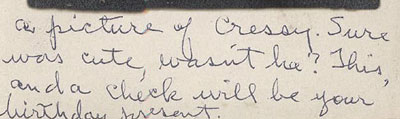 a picture of Cressy. Sure
was cute, wasn't he? This,
and a check will be your
birthday present.